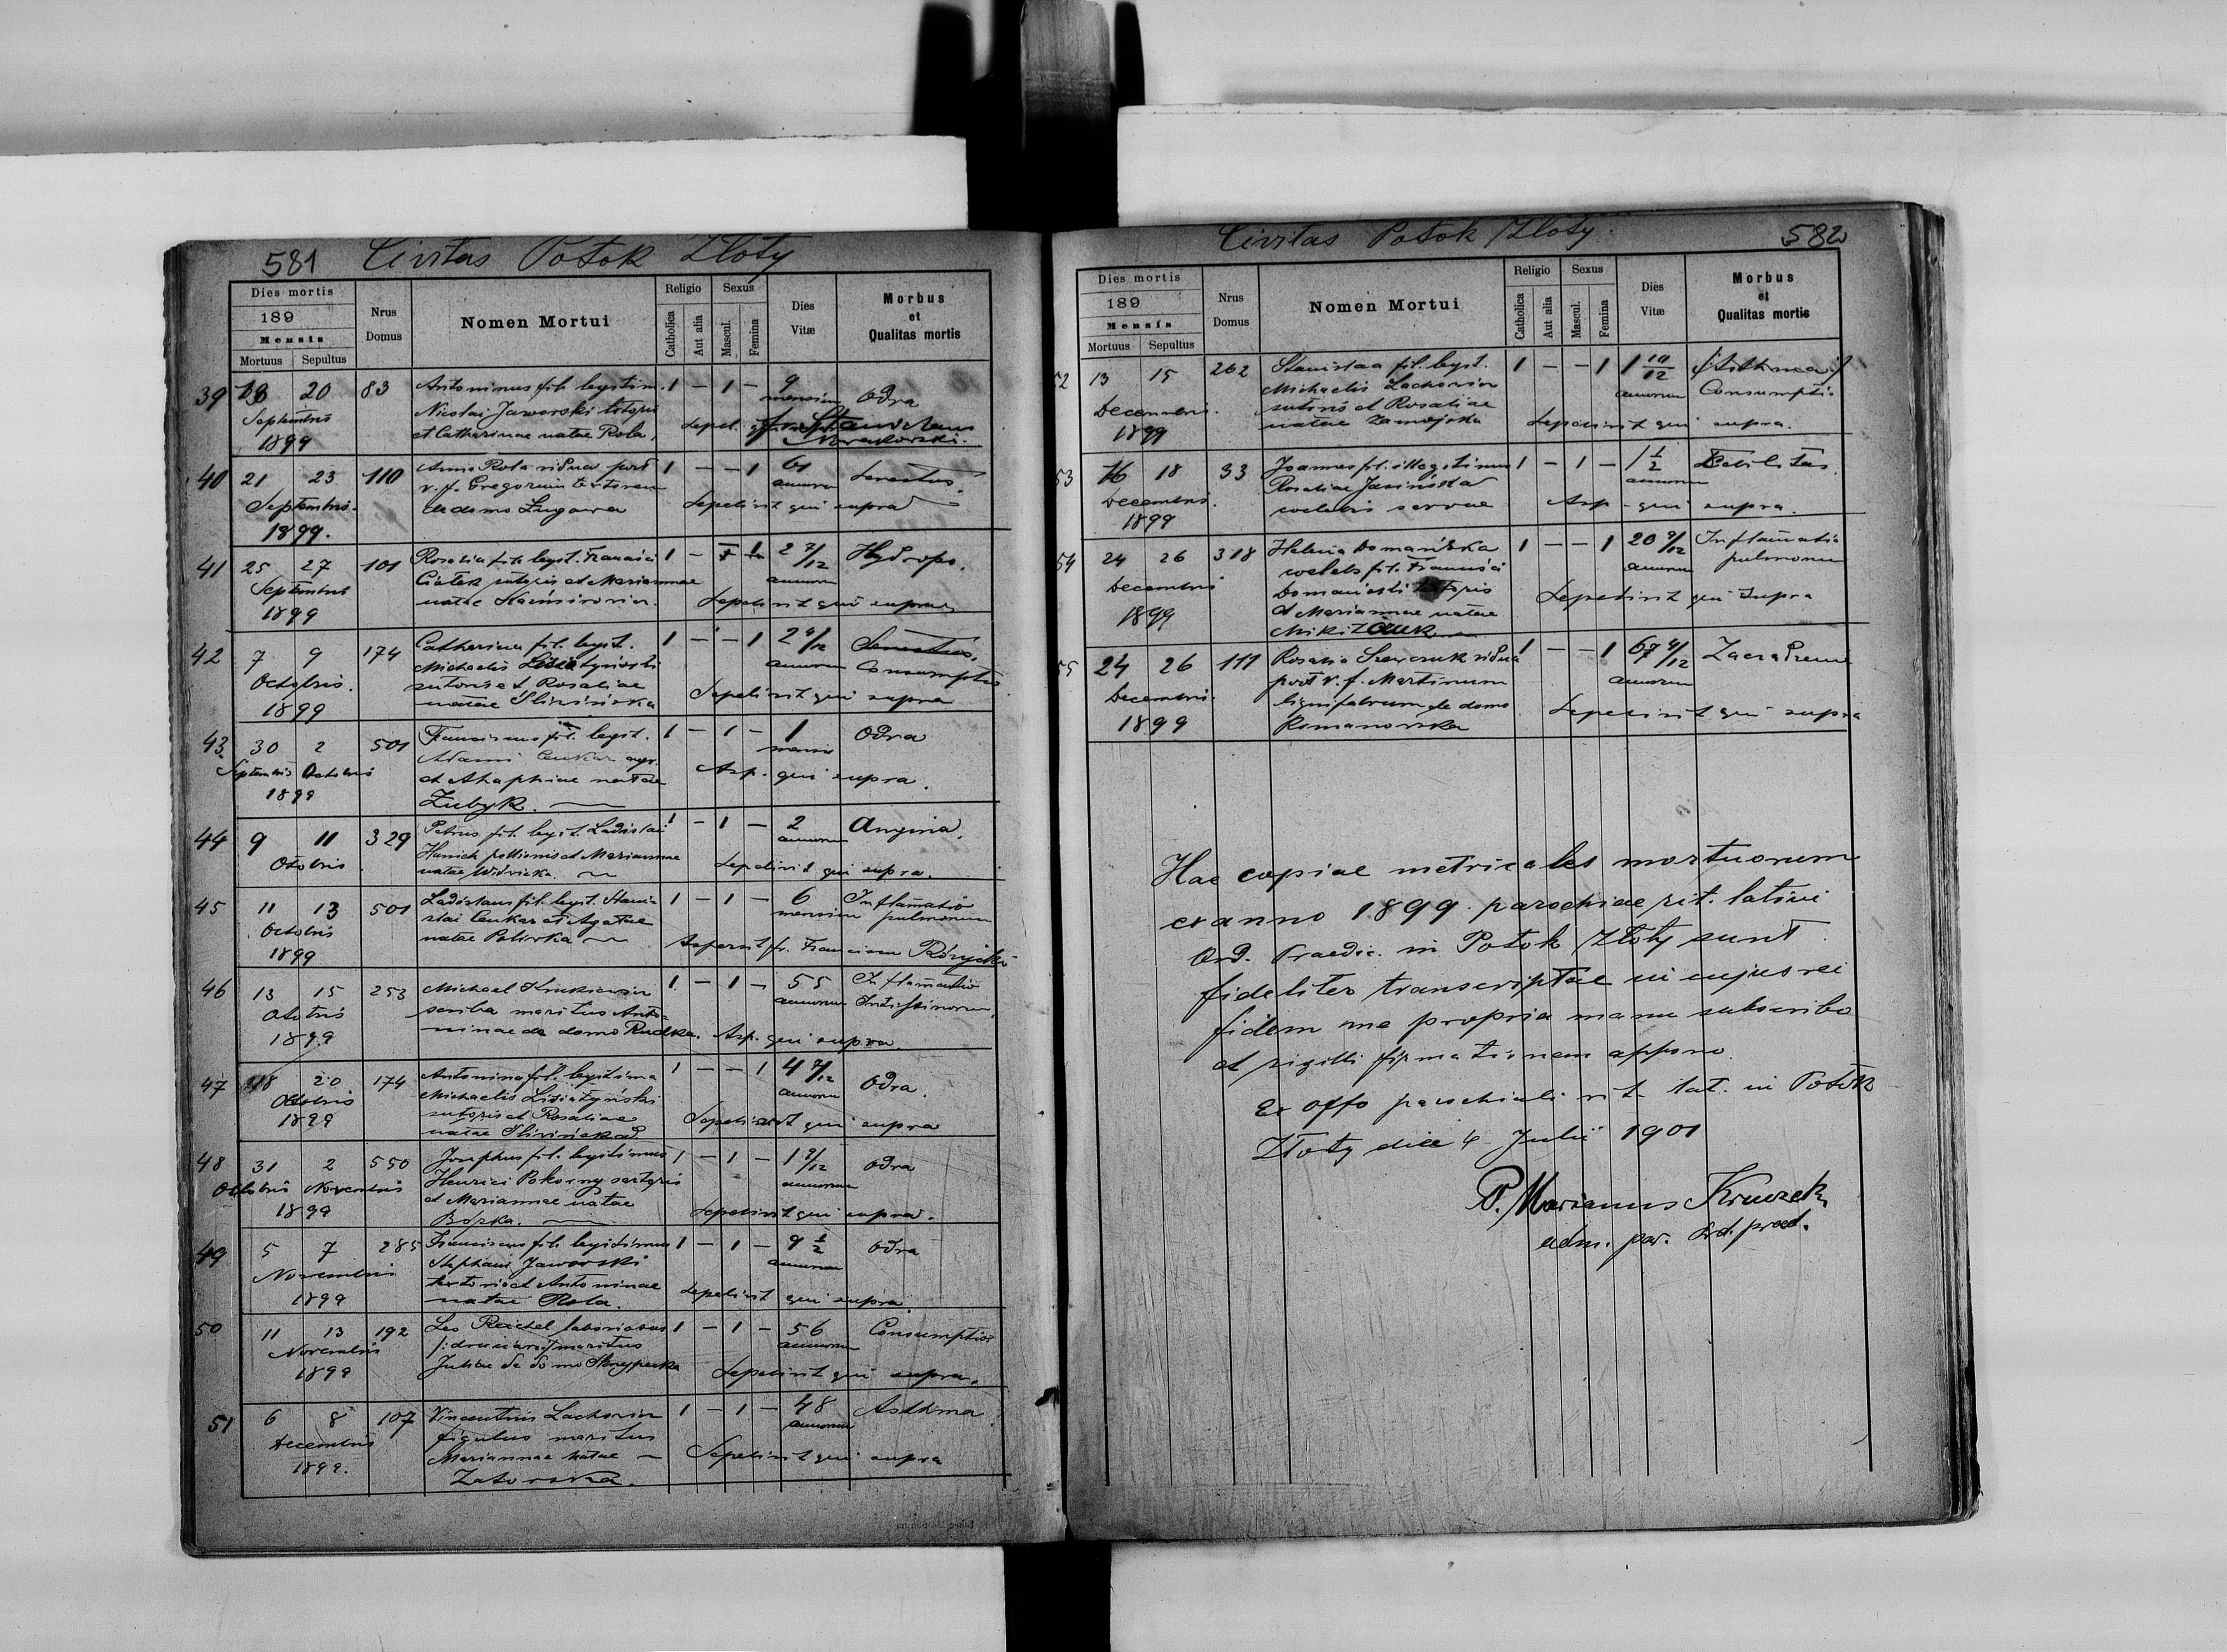 581 Civitas Potok Złoty
Dies mortis
189
Mensis
Mortuus Sepultus
Nrus Domus
Nomen Mortui
Religio
Catholica
Aut alia
Sexus
Mascul.
Femina
Dies Vitæ
Morbus et Qualitas mortis
39 20 83 Antoninus fil. legitim. 1 – 1 – 9 mensium Odra
Septembris Nicolai Jaworski
1899 et Catharinae natae Rola.
40 21 23 110 Anna Rola vidua post 1 – – 1 61 annorum
Septembris v. f. Gregorium textorem Sepelivit qui supra
1899. de domo Ługowa
41 25 27 101 Rosalia fil. legit. Francisci 1 – 2 7/12 annorum Hydrops.
Septembris et Mariannae
1899 natae Kaźmirowicz. Sepelivit qui supra
42 7 9 174 Catharina fil. legit. 1 – – 1 annorum Senectus.
Octobris. Michaelis Consumptio
1899 sutoris et Rosaliae Sepelivit qui supra
natae Śliwińska
43 30 2 501 Franciscus fil. legit. 1 – 1 – 1 mensis Odra
Septembris Octobris Adami Cenkar agr.
1899 et Ahaphiae natae Asp. qui supra.
Zubyk.
44 9 11 329 Petrus fil. legit. Ladislai 1 – 1 – 2 annorum Angina.
Otobris et Mariannae
natae Sepelivit qui supra.
45 11 13 501 Ladislaus fil. legit. Stanis- 1 – 1 – 6 mensium Inflamatio pulmonum
Octobris slai Cenkar et Agatae
1899 natae Poliwka
46 13 15 253 Michael Krukiewicz 1 – 1 – 55 annorum Inflamatio
scriba maritus Anto-
1899 ninae de domo Rudka. Asp. qui supra.
47 18 20 174 Antonina fil. legitima 1 – – 1 4 7/12 annorum Odra.
Octobris Michaelis
1899 sutoris et Rosaliae Sepelivit qui supra
natae Śliwińska
48 31 2 550 Josephus fil. legitimus 1 – 1 – annorum Odra
Octobris Novembris Henrici Pokorny sartoris
1899 et Mariannae natae Sepelivit qui supra.
49 5 7 285 Franciscus fil. legitimus 1 – 1 – 9 1/2 annorum Odra
Novembris Stephani Jaworski
1899 textoris et Antoninae Sepelivit qui supra.
natae Rola.
50 11 13 192 Leo Reichel laboriosus 1 – 1 – 56 annorum Consumptio
Novembris maritus
1899 Juliae de domo Sepelivit qui supra.
51 6 8 107 Vincentius Lachowicz 1 – 1 – 48 annorum Asthma.
Decembris figulus maritus
1899. Mariannae natae – Sepelivit qui supra
Zatorska.
Civitas Potok Złoty. 582
Dies mortis
189
Mensis
Mortuus Sepultus
Nrus Domus
Nomen Mortui
Religio
Catholica
Aut alia
Sexus
Mascul.
Femina
Dies Vitæ
Morbus et Qualitas mortis
52 13 15 262 Stanislaa fil. legit. 1 – – 1 1 10/12 annorum (Asthma)
Decembris. Michaelis Lachowicz Consumptio
1899 sutoris et Rosaliae
natae Zamojska Sepelivit qui supra.
53 16 18 33 Joannes fil. illegitimus 1 – 1 – 1 1/2 annorum Debilitas.
Decembris. Rosaliae Jasińska
1899 coelebis servae Asp. qui supra.
54 24 26 318 Helena Domańska 1 – – 1 20 9/12 annorum Inflamatio pulmonum
Decembris coelebs fil. Francisci
1899 Domański textoris Sepelivit qui supra
et Mariannae natae
55 24 26 111 Rosalia Szewczuk vidua 1 – – 1 67 annorum
Decembris. post v. f. Martinum
1899 lignifabrum de domo Sepelivit qui supra
Romanowska
Hae copiae metricales mortuorum
ex anno 1899 parochiae rit. latini
Ord. Praedic. in Potok Złoty sunt
fideliter transcriptae in cujus rei
fidem me propria manu subscribo
et sigilli firmationem appono.
Ex offo parochiali rit. lat. in Potok
Złoty die 4 Julii 1901
P. Marianus Kruczek
adm. par. Ord. praed.